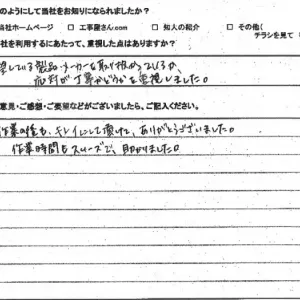 のようにして当社をお知りになられましたか？
当社ホームページ □ 工事屋さん.com □ 知人の紹介 □ その他（
チラシを見て
社を利用するにあたって、重視した点はありますか？
望している製品・メーカーを取り扱めているか、
応対が丁寧かどうかを重視しました。
意見・ご感想・ご要望などがございましたら、ご記入ください。
作業の後も、キレイにして頂けて、ありがとうございました。
作業時間もスムーズで、助かりました。